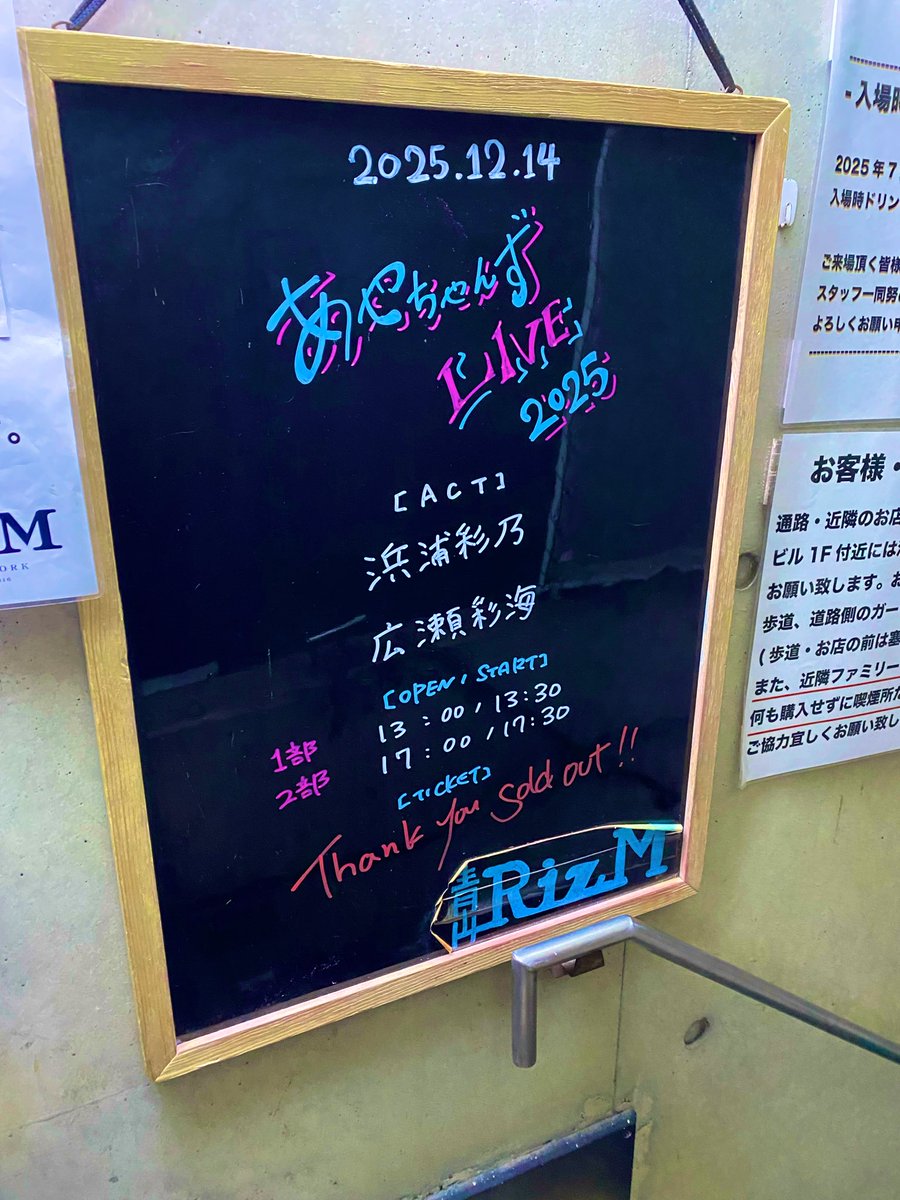 2025.12.14
あやちゃんず
LIVE
2025
[ACT]
浜浦彩乃
広瀬彩海
[OPEN / START]
1部 13:00 / 13:30
2部 17:00 / 17:30
[TICKET]
Thank you sold out!!
青山 RizM
。
M
ORK
- 入場時
2025年7
入場時ドリン
ご来場頂く皆様
スタッフ一同努
よろしくお願い申
お客様・
通路・近隣のお店
ビル1F付近には
お願い致します。お
歩道、道路側のガー
(歩道・お店の前は塞
また、近隣ファミリー
何も購入せずに喫煙所だ
ご協力宜しくお願い致し